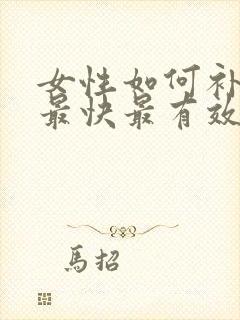 女性如何补
最快最有效
馬招